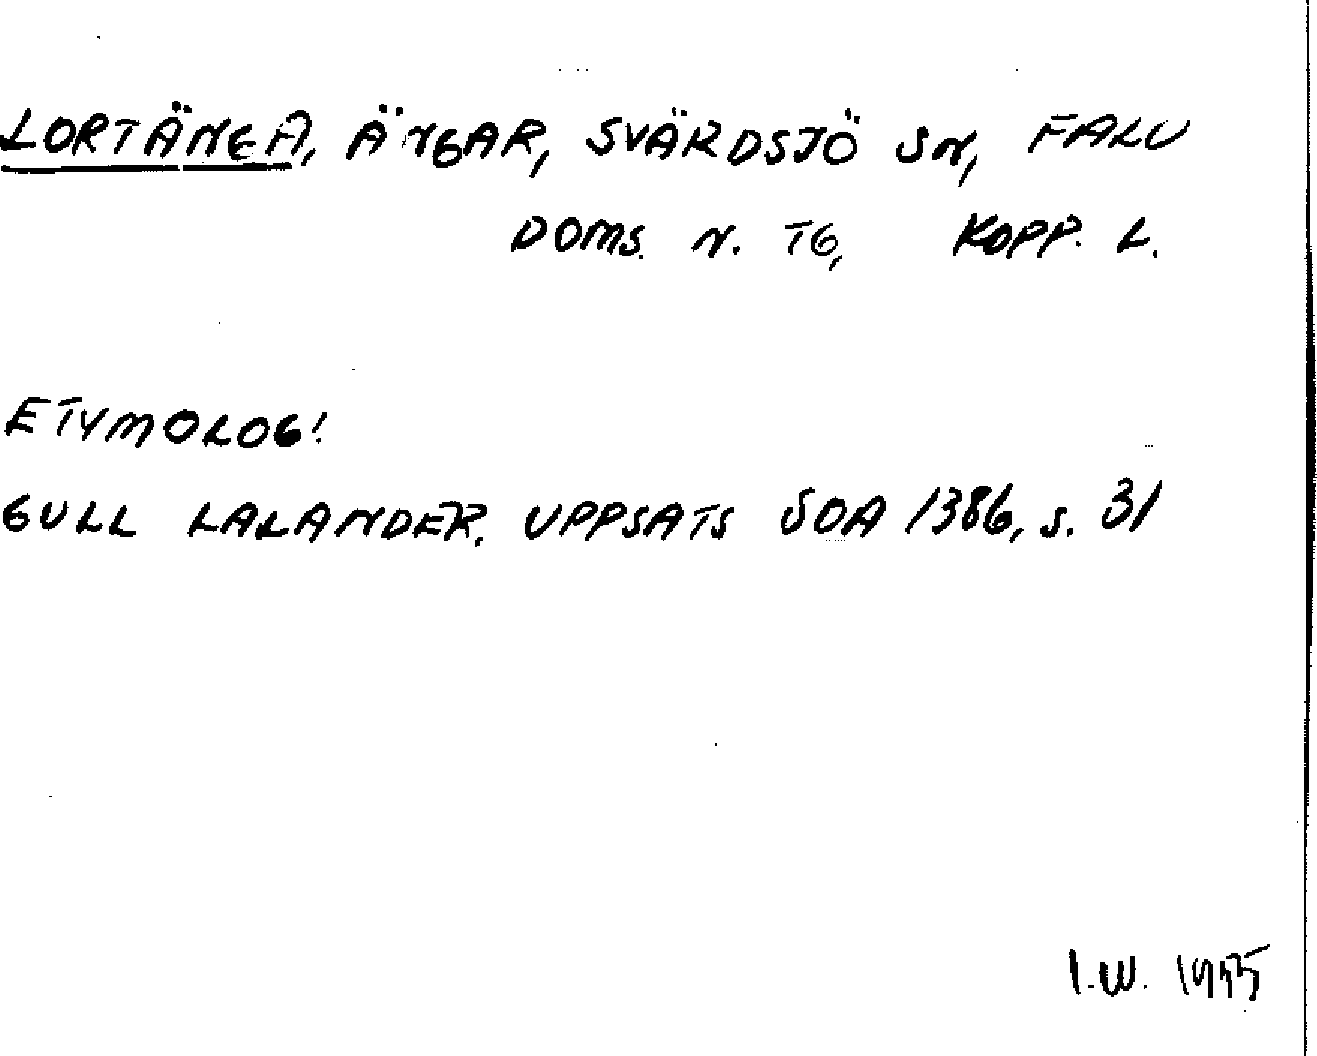 LORTÄNGA, ÄNGAR, SVÄRDSJÖ SN, FALU
DOMS. N. TG, KOPP. L.
ETYMOLOGI
GULL LALANDER. UPPSATS SOA 1386, s. 31
I.W. 1975